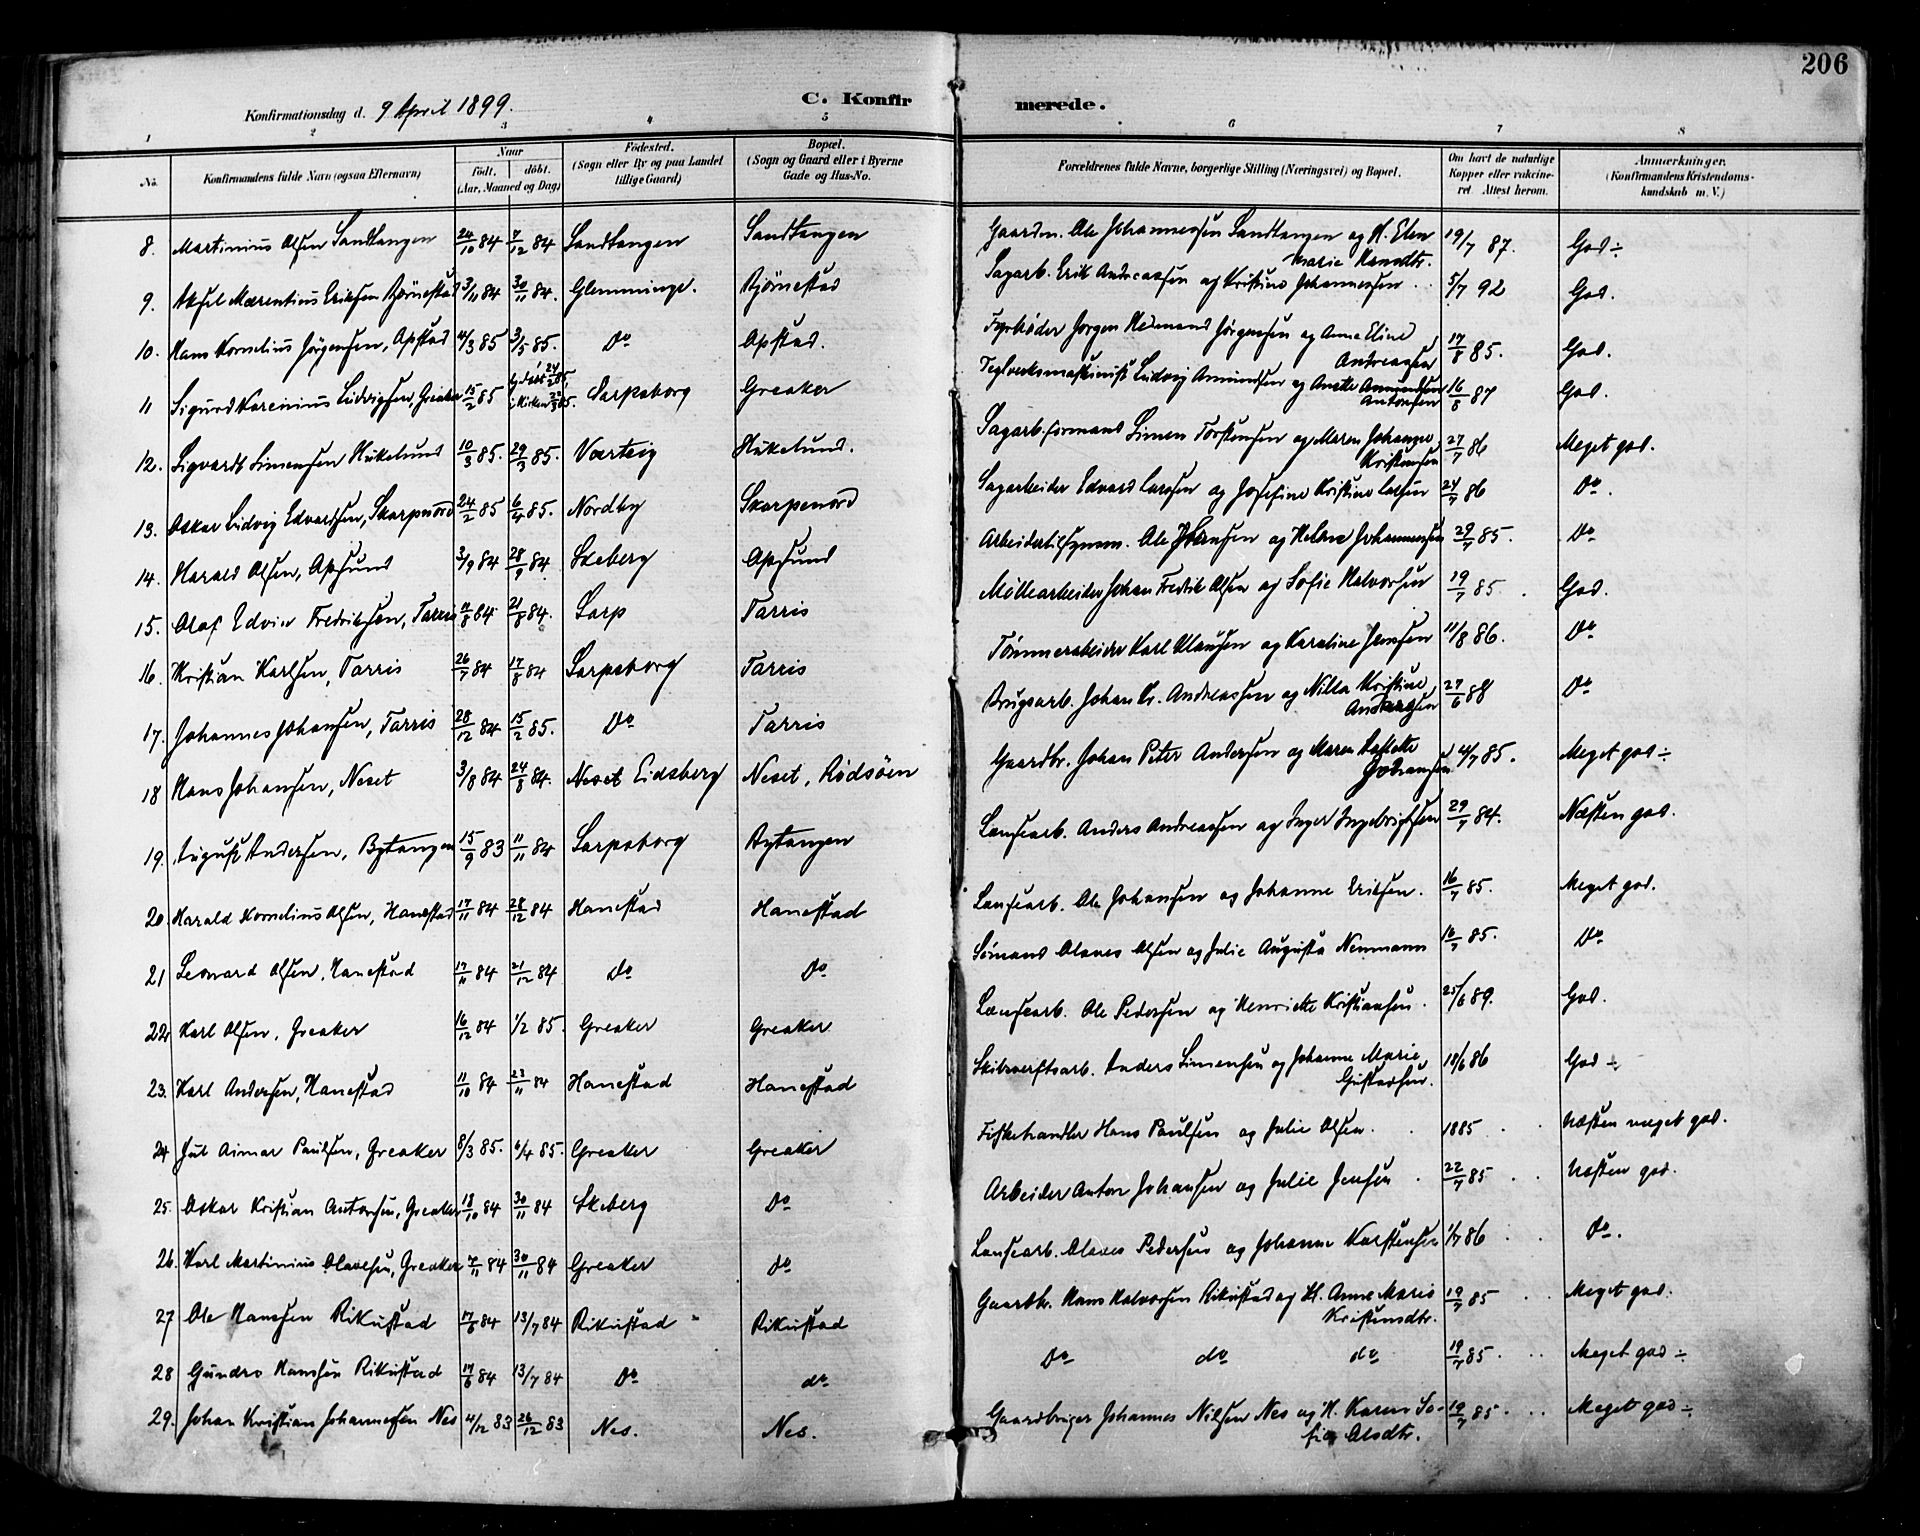 206
Konfirmationsdag d. 9 April 1899.
C. Konfirmerede.
1 2 3 4 5 6 7 8
No. Konfirmandens fulde Navn (ogsaa Efternavn) Naar født. døbt. (Aar, Maaned og Dag) Fødested. (Sogn eller By og paa Landet tillige Gaard) Bopæl. (Sogn og Gaard eller i Byerne Gade og Hus-No. Forældrenes fulde Navne, borgerlige Stilling (Næringsvei) og Bopæl. Om havt de naturlige Kopper eller vakcineret. Attest herom. Anmærkninger. (Konfirmandens Kristendomskundskab m. V.)
8. Martinius Olsen Sandtangen 24/10 84 7/12 84 Sandtangen Sandtangen Gaardm. Ole Johannessen Sandtangen og H. Elen Marie Knudtr. 19/7 87. God ÷
9. Aksel Marentius Eriksen Bjørnestad 3/11 84 30/11 84. Glemminge. Bjørnestad Sagarb. Erik Andreassen og Kristine Johannessen 5/7 92 God.
10. Hans Kornelius Jørgensen, Apstad 11/3 85 3/5 85. Do Apstad. Fyrbøder Jørgen Hermand Jørgensen og Anne Eline Andreassen 17/8 85. God.
11 Sigurd Karenius Ludvigsen, Greaker 15/2 85 i Kirken Sarpsborg Greaker Teglverksmaskinist Ludvig Amundsen og Anette Amundsen Antonsen 16/8 87 God.
12. Sigvardt Simensen Hukelund 10/3 85. 29/3 85. Varteig Hukelund. Sagarb.formand Simen Torstensen og Maren Johanne Kristensen 27/7 86 Meget god.
13. Oskar Ludvig Edvardsen, Skarpenord 24/2 85 6/4 85. Nordby Skarpenord Sagarbeider Edvard Larsen og Josefine Kristine Larsen 24/7 86 Do.
14. Harald Olsen, Apsund 3/9 84 28/9 84 Skeberg Apsund Arbeidertilsynsm. Ole Johansen og Helene Johannessen 29/7 85. Do
15. Olaf Edvin Fredriksen, Tarris 11/8 84. 21/8 84. Sarp Tarris Møllearbeider Johan Fredrik Olsen og Sofie Halvorsen 19/7 85. God.
16. Kristian Karlsen, Tarris 26/7 84 17/8 84 Sarpsborg Tarris Tømmerarbeider Karl Klausen og Karoline Jensen 11/8 86. Do
17. Johannes Johansen, Tarris 28/12 84 15/2 85. Do Tarris Brugsarb. Johan Kr. Andreassen og Nilla Kristine Andersen 27/6 88 Do
18 Hans Johansen, Neset 3/8 84 24/8 84. Neset Eidsberg Neset, Rødsøen Gaardbr. Johan Peter Andersen og Maren Johansen 4/7 85. Meget god ÷
19. August Andersen, Bytangen 15/9 83 11/11 84 Sarpsborg Bytangen Lænsearb. Anders Andreassen og Inger Ingebrigtsen 29/7 84. Næsten god.
20. Harald Kornelius Olsen, Hanestad 17/11 84 28/12 84 Hanestad Hanestad Lænsearb. Ole Johansen og Johanne Eriksen. 16/7 85. Meget god.
21 Leonard Olsen, Hanestad 17/11 84 21/12 84 Do Do Sømand Olaves Olsen og Julie Augusta Neumann 16/7 85. Do
22. Karl Olsen, Greaker 16/12 84 1/2 85. Greaker Greaker Lænsearb. Ole Pedersen og Henriette Kristiansen. 25/6 89. God.
23. Karl Andersen, Hanestad 11/10 84 23/11 84 Hanestad Hanestad Skibsverftsarb. Anders Simensen og Johanne Marie Gustavsen. 18/6 86 God ÷
24 Jul Aimar Paulsen, Greaker 8/3 85. 6/4 85. Greaker Greaker Fiskehandler Hans Paulsen og Julie Olsen. 1885 Næsten meget god.
25. Oskar Kristian Antonsen, Greaker 18/10 84 30/11 84 Skeberg Do Arbeider Anton Johansen og Julie Jensen 22/7 85 Næsten god.
26. Karl Martinius Olavesen, Greaker 7/11 84 30/11 84 Greaker do Lænsearb. Olaves Pedersen og Johanne Karstensen 1/7 86 Do.
27 Ole Hansen Rikustad 17/6 84 13/7 84 Rikustad Rikustad Gaardbr. Hans Halvorsen Rikustad og H. Anne Marie Kristensdtr. 19/7 85 Meget god.
28 Gundro Hansen Rikustad 17/6 84 13/7 84 Do do Do do do 19/7 85. Meget god ÷
29. Johan Kristian Johannessen Nes 4/12 83 26/12 83 Nes. Nes. Gaardbruger Johannes Nilsen Nes og H. Karen Sofie Olsdtr. 19/7 85. Meget god ÷